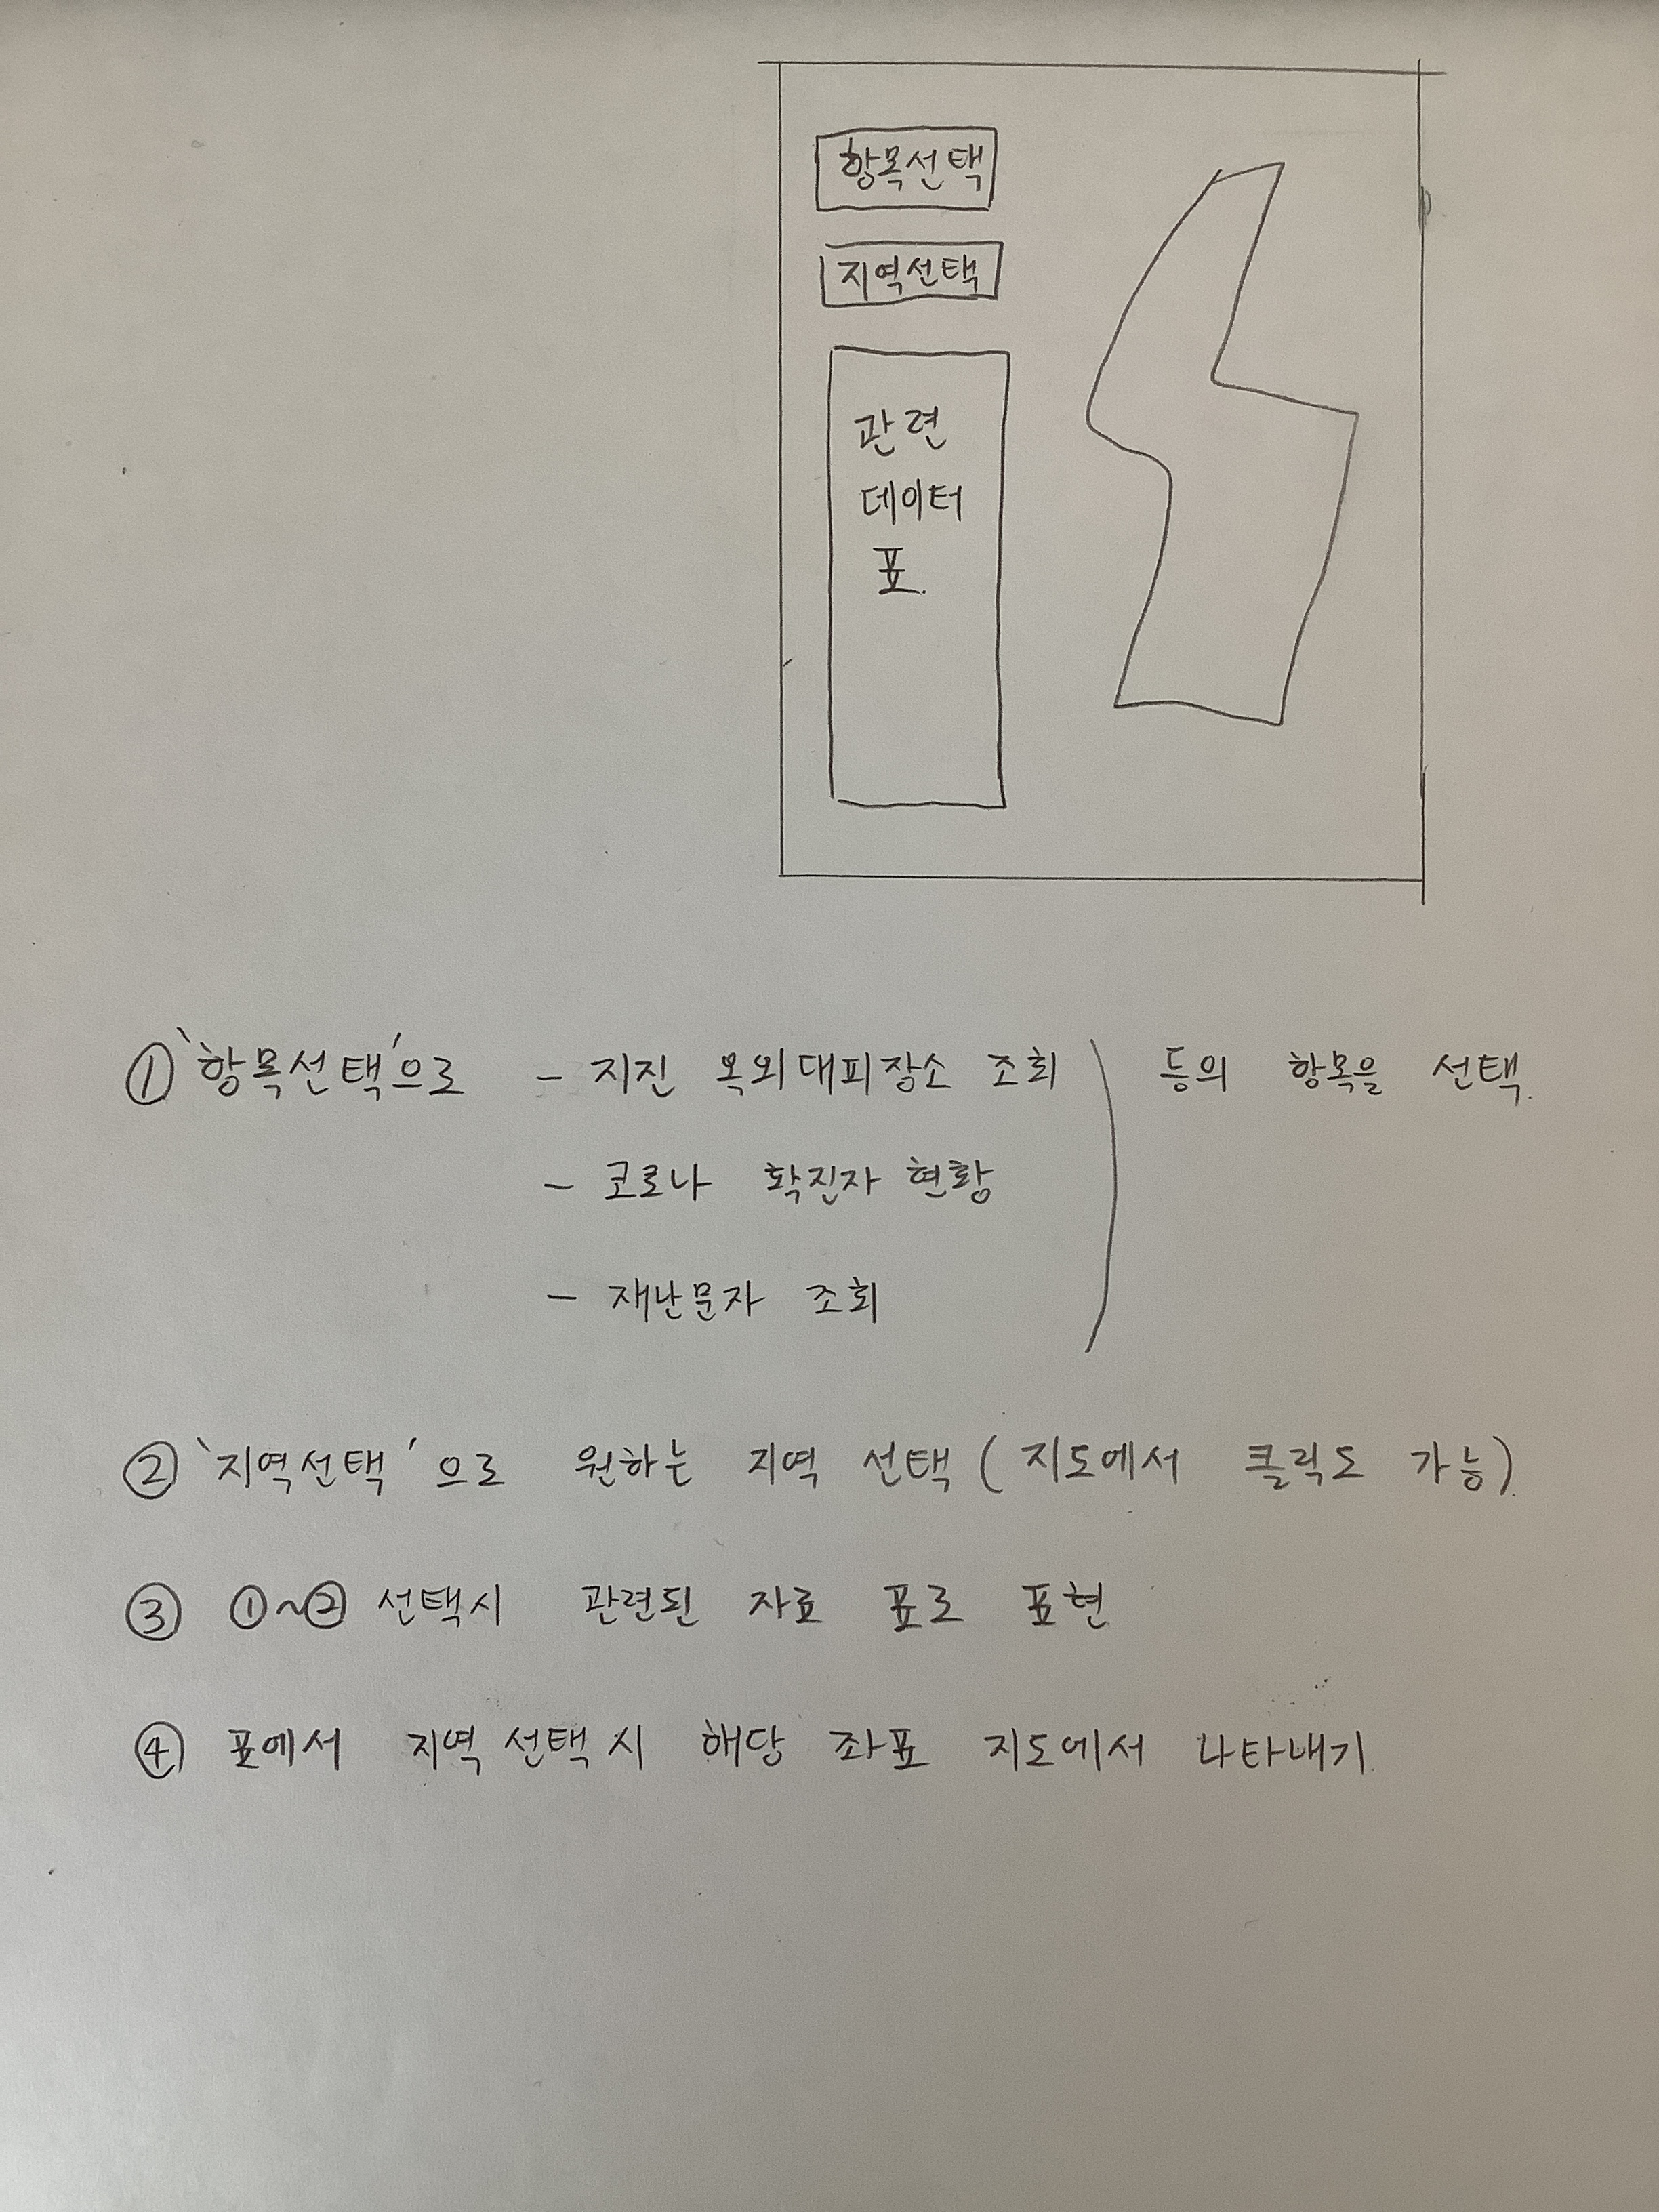 항목선택
지역선택
관련
데이터
표.
① '항목선택'으로 - 지진 옥외대피장소 조회 등의 항목을 선택.
- 코로나 확진자 현황
- 재난문자 조회
② '지역선택'으로 원하는 지역 선택 (지도에서 클릭도 가능).
③ ①~② 선택시 관련된 자료 표로 표현
④ 표에서 지역 선택 시 해당 좌표 지도에서 나타내기.